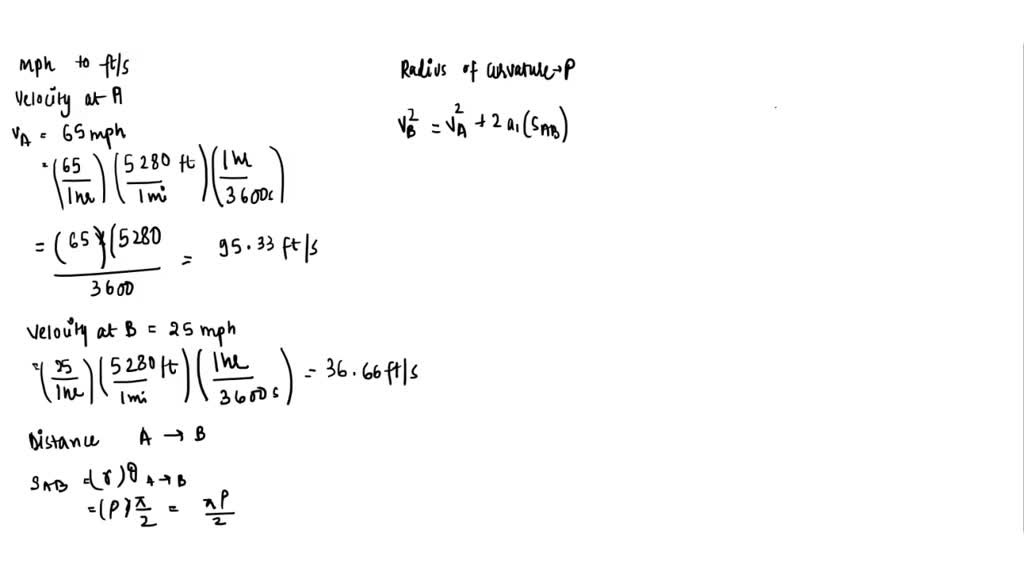 mph to ft/s
Velocity at A
V_A = 65 mph
= (65/1hr) (5280 ft/1mi) (1hr/3600s)
= (65)(5280/3600 = 95.33 ft/s
Velocity at B = 25 mph
= (25/1hr) (5280 ft/1mi) (1hr/3600s) = 36.66 ft/s
Distance A → B
S_AB = (r) θ_A→B
= (ρ) π/2 = πρ/2
Radius of curvature → ρ
V_B^2 = V_A^2 + 2 a_1 (S_AB)